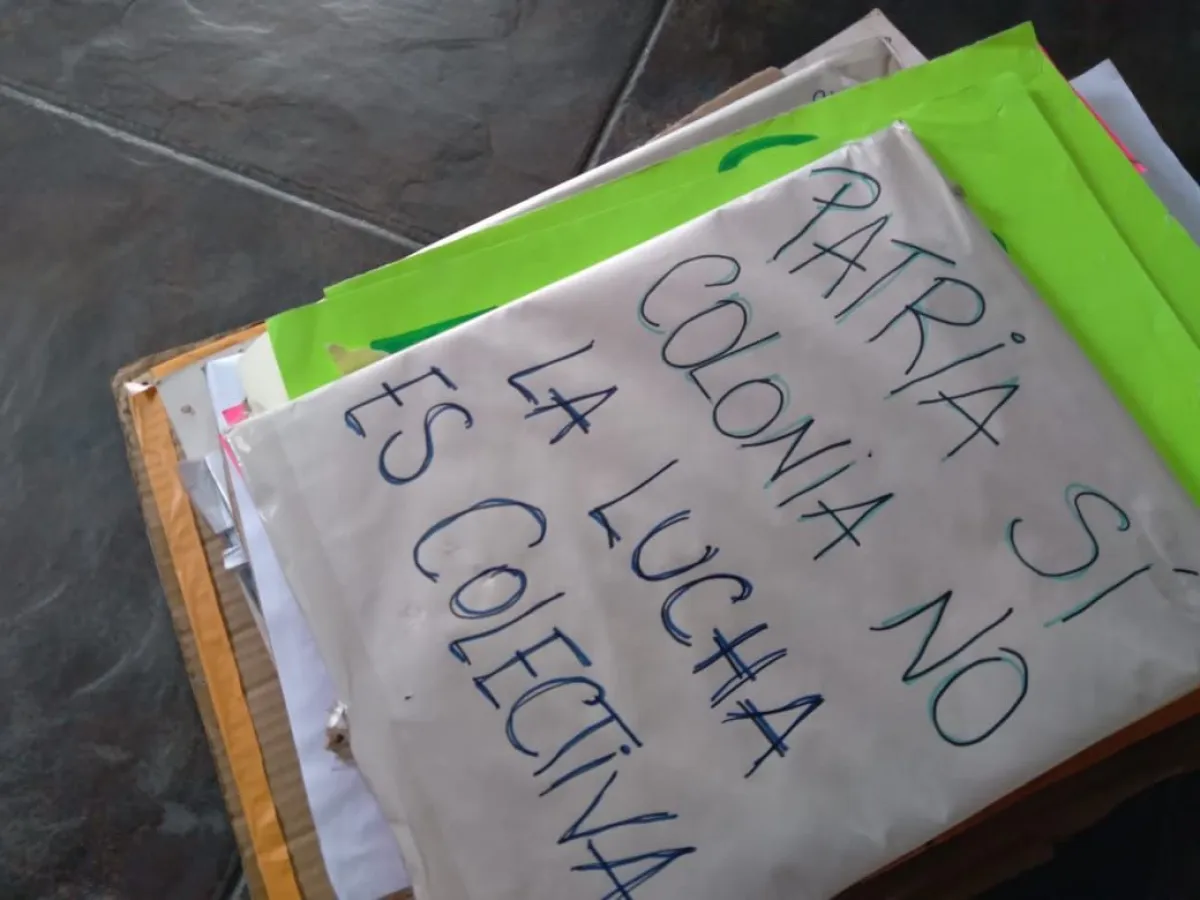 PATRIA SÍ
COLONIA NO
LA LUCHA
ES COLECTIVA